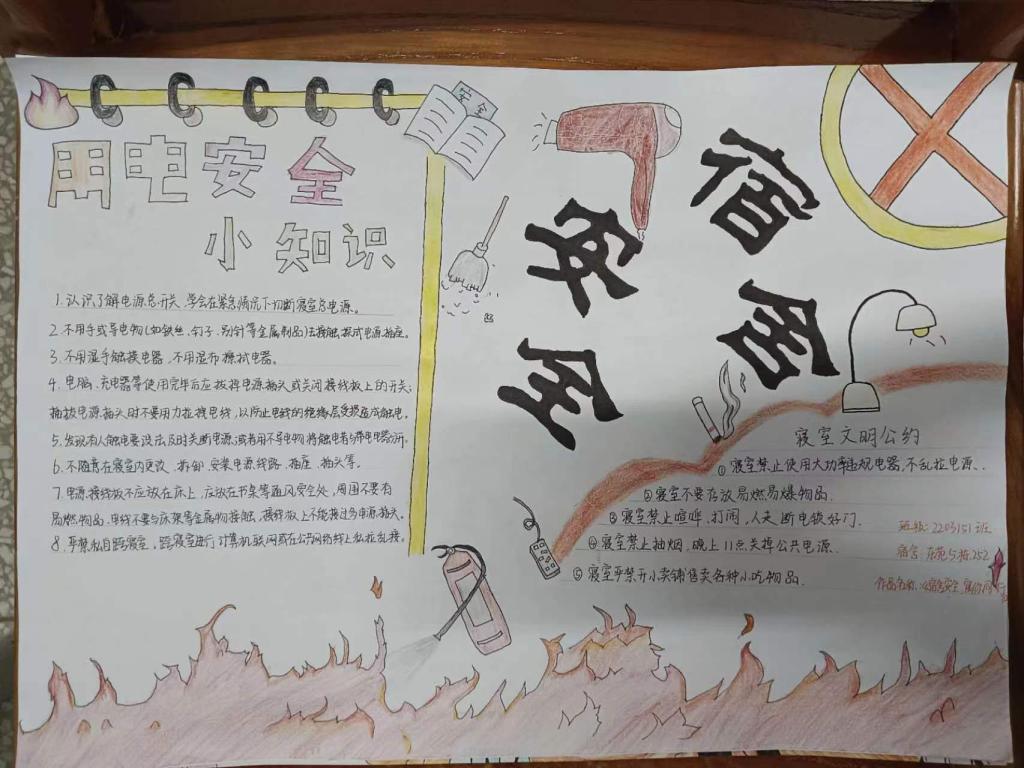 安全
用电安全
小知识
1.认识了解电源总开关,学会在紧急情况下切断寝室总电源。
2.不用手或导电物(如铁丝、钉子、别针等金属制品)去接触、探试电源插座。
3.不用湿手触摸电器,不用湿布擦拭电器。
4.电脑、充电器等使用完毕后应拔掉电源插头或关闭接线板上的开关;
插拔电源插头时不要用力拉拽电线,以防止电线的绝缘层受损造成触电。
5.发现有人触电要设法及时关断电源;或者用不导电物将触电者与带电电器分开。
6.不随意在寝室内更改、拆卸、安装电源线路、插座、插头等。
7.电源接线板不应放在床上,应放在书桌等通风安全处,周围不要有
易燃物品.电线不要与床架等金属物接触,接线板上不能接过多电源插头。
8.严禁私自跨寝室、跨寝室进行计算机联网或在公共网络线上私拉乱接。
宿居
安全
寝室文明公约
①寝室禁止使用大功率违规电器,不乱拉电源.
②寝室不要存放易燃易爆物品.
③寝室禁止喧哗,打闹,人走断电锁好门.
④寝室禁止抽烟,晚上11点关掉公共电源.
⑤寝室严禁开小卖铺售卖各种小吃物品.
班级:2203151班
宿舍:东苑5栋252
作品名称:《宿舍安全